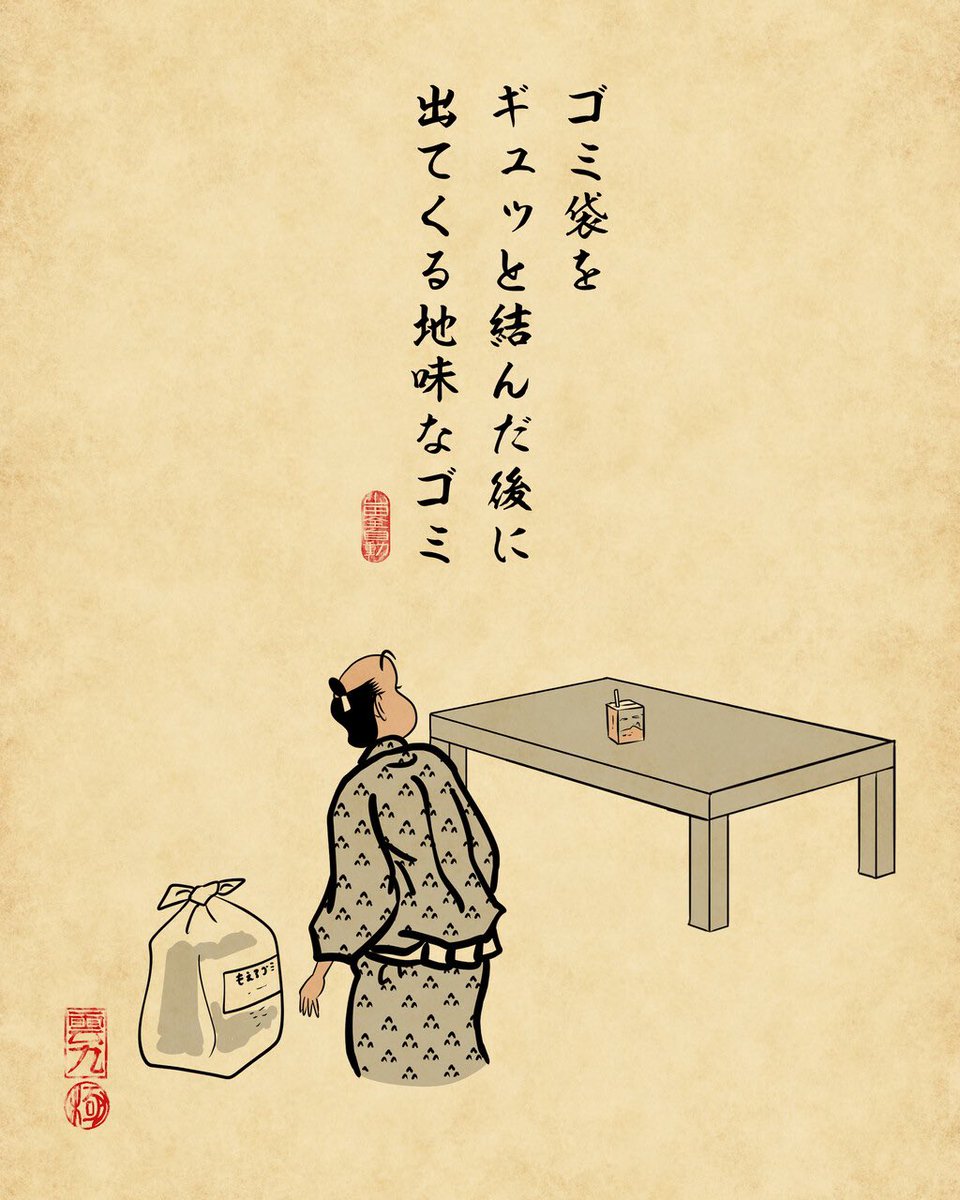 ゴミ袋を
ギュッと結んだ後に
出てくる地味なゴミ
もえるゴミ